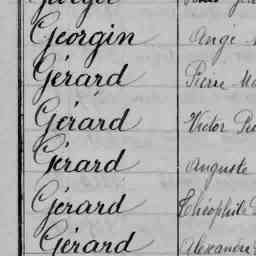 Georgin Ange
Gérard Pierre
Gérard Victor
Gérard Auguste
Gérard Théophile
Gérard Alexandre